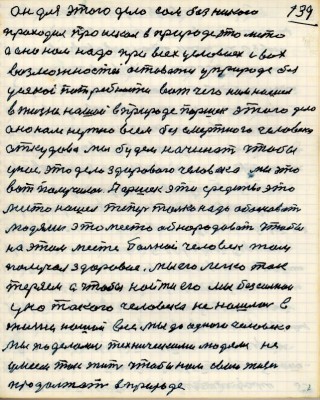 он для этого дело сам без никого 139
проходил проникал в природе это место
а оно нам надо при всех условиях и вох
возможностей оставаться в природе без
всякой потребности вот чего нам нашел
в жизни нашей в природе Паршек этого дело
оно нам нужно всем бессмертного человека
откудова мы будем начинать чтобы
у нас это дело здорового человека мы это
вот получили Паршек эти средства это
место нашел теперь только надо обосновать
людями это место обнародовать чтобы
на этом месте больной человек там
получал здоровье. мы его легко так
теряем а чтобы найти его мы бессильны
уно такого человека не нашлось в
жизни нашей все мы до одного человека
мы поделались техническими людями не
умеем так жить чтобы нам свою жизнь
продолжать в природе